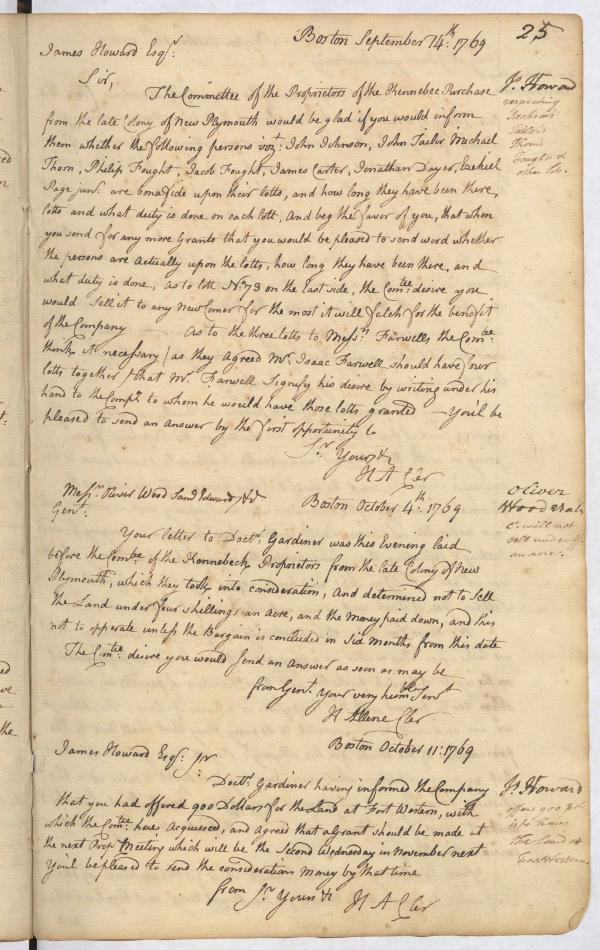 25
Boston September 14th: 1769
James Howard Esqr.
Sir,
The Committee of the Proprietors of the Kennebec Purchase
from the late Colony of New Plymouth would be glad if you would inform
them whether the following persons vizt John Johnson, John Tailor Michael
Thorn, Philip Fought, Jacob Fought, James Carter, Jonathan Dayer, Ezekiel
Page junr. are bonafide upon their lotts, and how long they have been there,
lotts and what duty is done on each lott, And beg the favor of you, that when
you send for any more Grants that you would be pleased to send word whether
the persons are actually upon the lotts, how long they have been there, and
what duty is done, as to lott No. 73 on the East side, the Comtee desire you
would sell it to any New Comer for the most it will fetch for the benefit
of the Company — As to the three lotts to Messrs Farwells the Comtee:
think it necessary (as they agreed Mr. Isaac Farwell should have four
lotts together) that Mr. Farwell Signify his desire by writing under his
hand to the Compy. to whom he would have those lotts granted — You'l be
pleased to send an answer by the first opportunity to
Sr. Yours &c
H A Cler
Js. Howard
respecting
Taylors
Thorn
Fought &
other lots.
Messrs Oliver Wood Sand Edward &c
Boston October 4th: 1769
Gent:
Your letter to Doctr. Gardiner was this Evening laid
before the Comtee of the Kennebeck Proprietors from the late Colony of New
Plymouth, which they took into consideration, And determined not to Sell
the Land under four shillings an Acre, and the Money paid down, and this
not to opperate unless the Bargain is concluded in Six Months from this date
The Comtee: desire you would send an Answer as soon as may be
from Gent. Your very humble Servt
H Allene Cler
Oliver
Wood & als
Co. will not
sell under
an acre.
Boston October 11: 1769
James Howard Esqr: Sr
Doctr. Gardiner having informed the Company
that you had offered 900 Dollars for the Land at Fort Western, with
which the Comtee: have Acquiesed, and agreed that a grant should be made at
the next Propr Meeting which will be the Second Wednesday in November next
You'l be pleased to send the consideration money by that time
from Sr. Yours &c H A Cler
Js. Howard
offers 900
the land at
Fort Western.